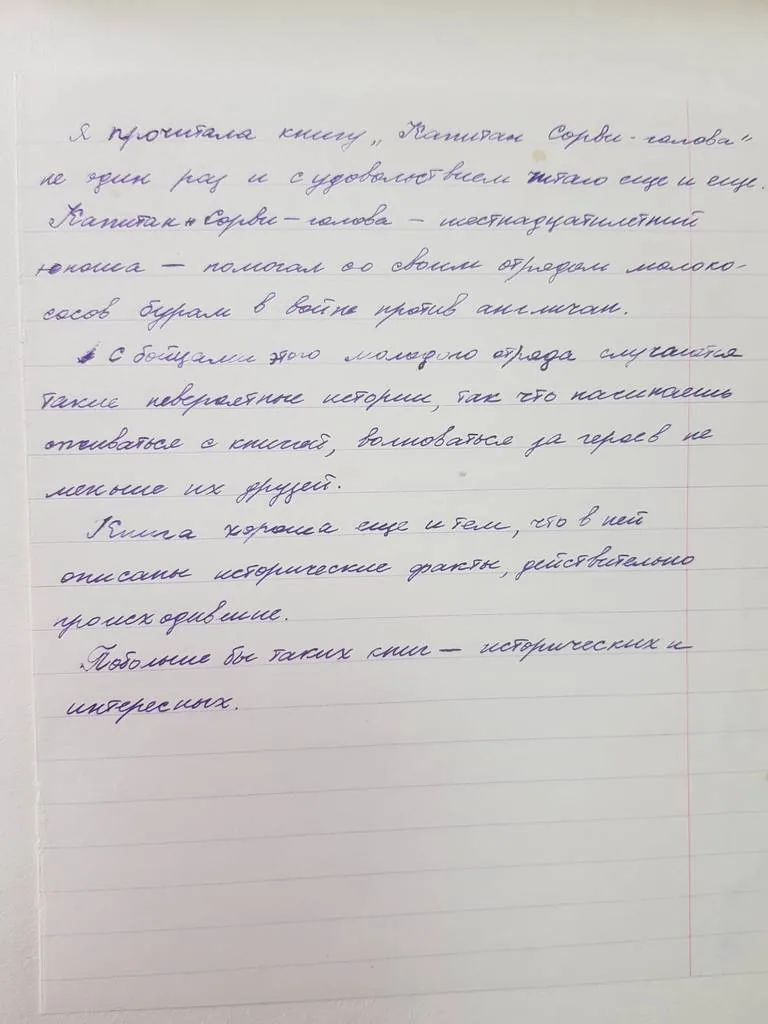 Я прочитала книгу „Капитан Сорви-голова"
не один раз и с удовольствием читаю еще и еще.
Капитан Сорви-голова – шестнадцатилетний
юноша – помогал со своим отрядом молоко-
сосов бурам в войне против англичан.
С бойцами этого молодого отряда случаются
такие невероятные истории, так что начинаешь
сживаться с книгой, волноваться за героев не
меньше их друзей.
Книга хороша еще и тем, что в ней
описаны исторические факты, действительно
происходившие.
Побольше бы таких книг – исторических и
интересных.